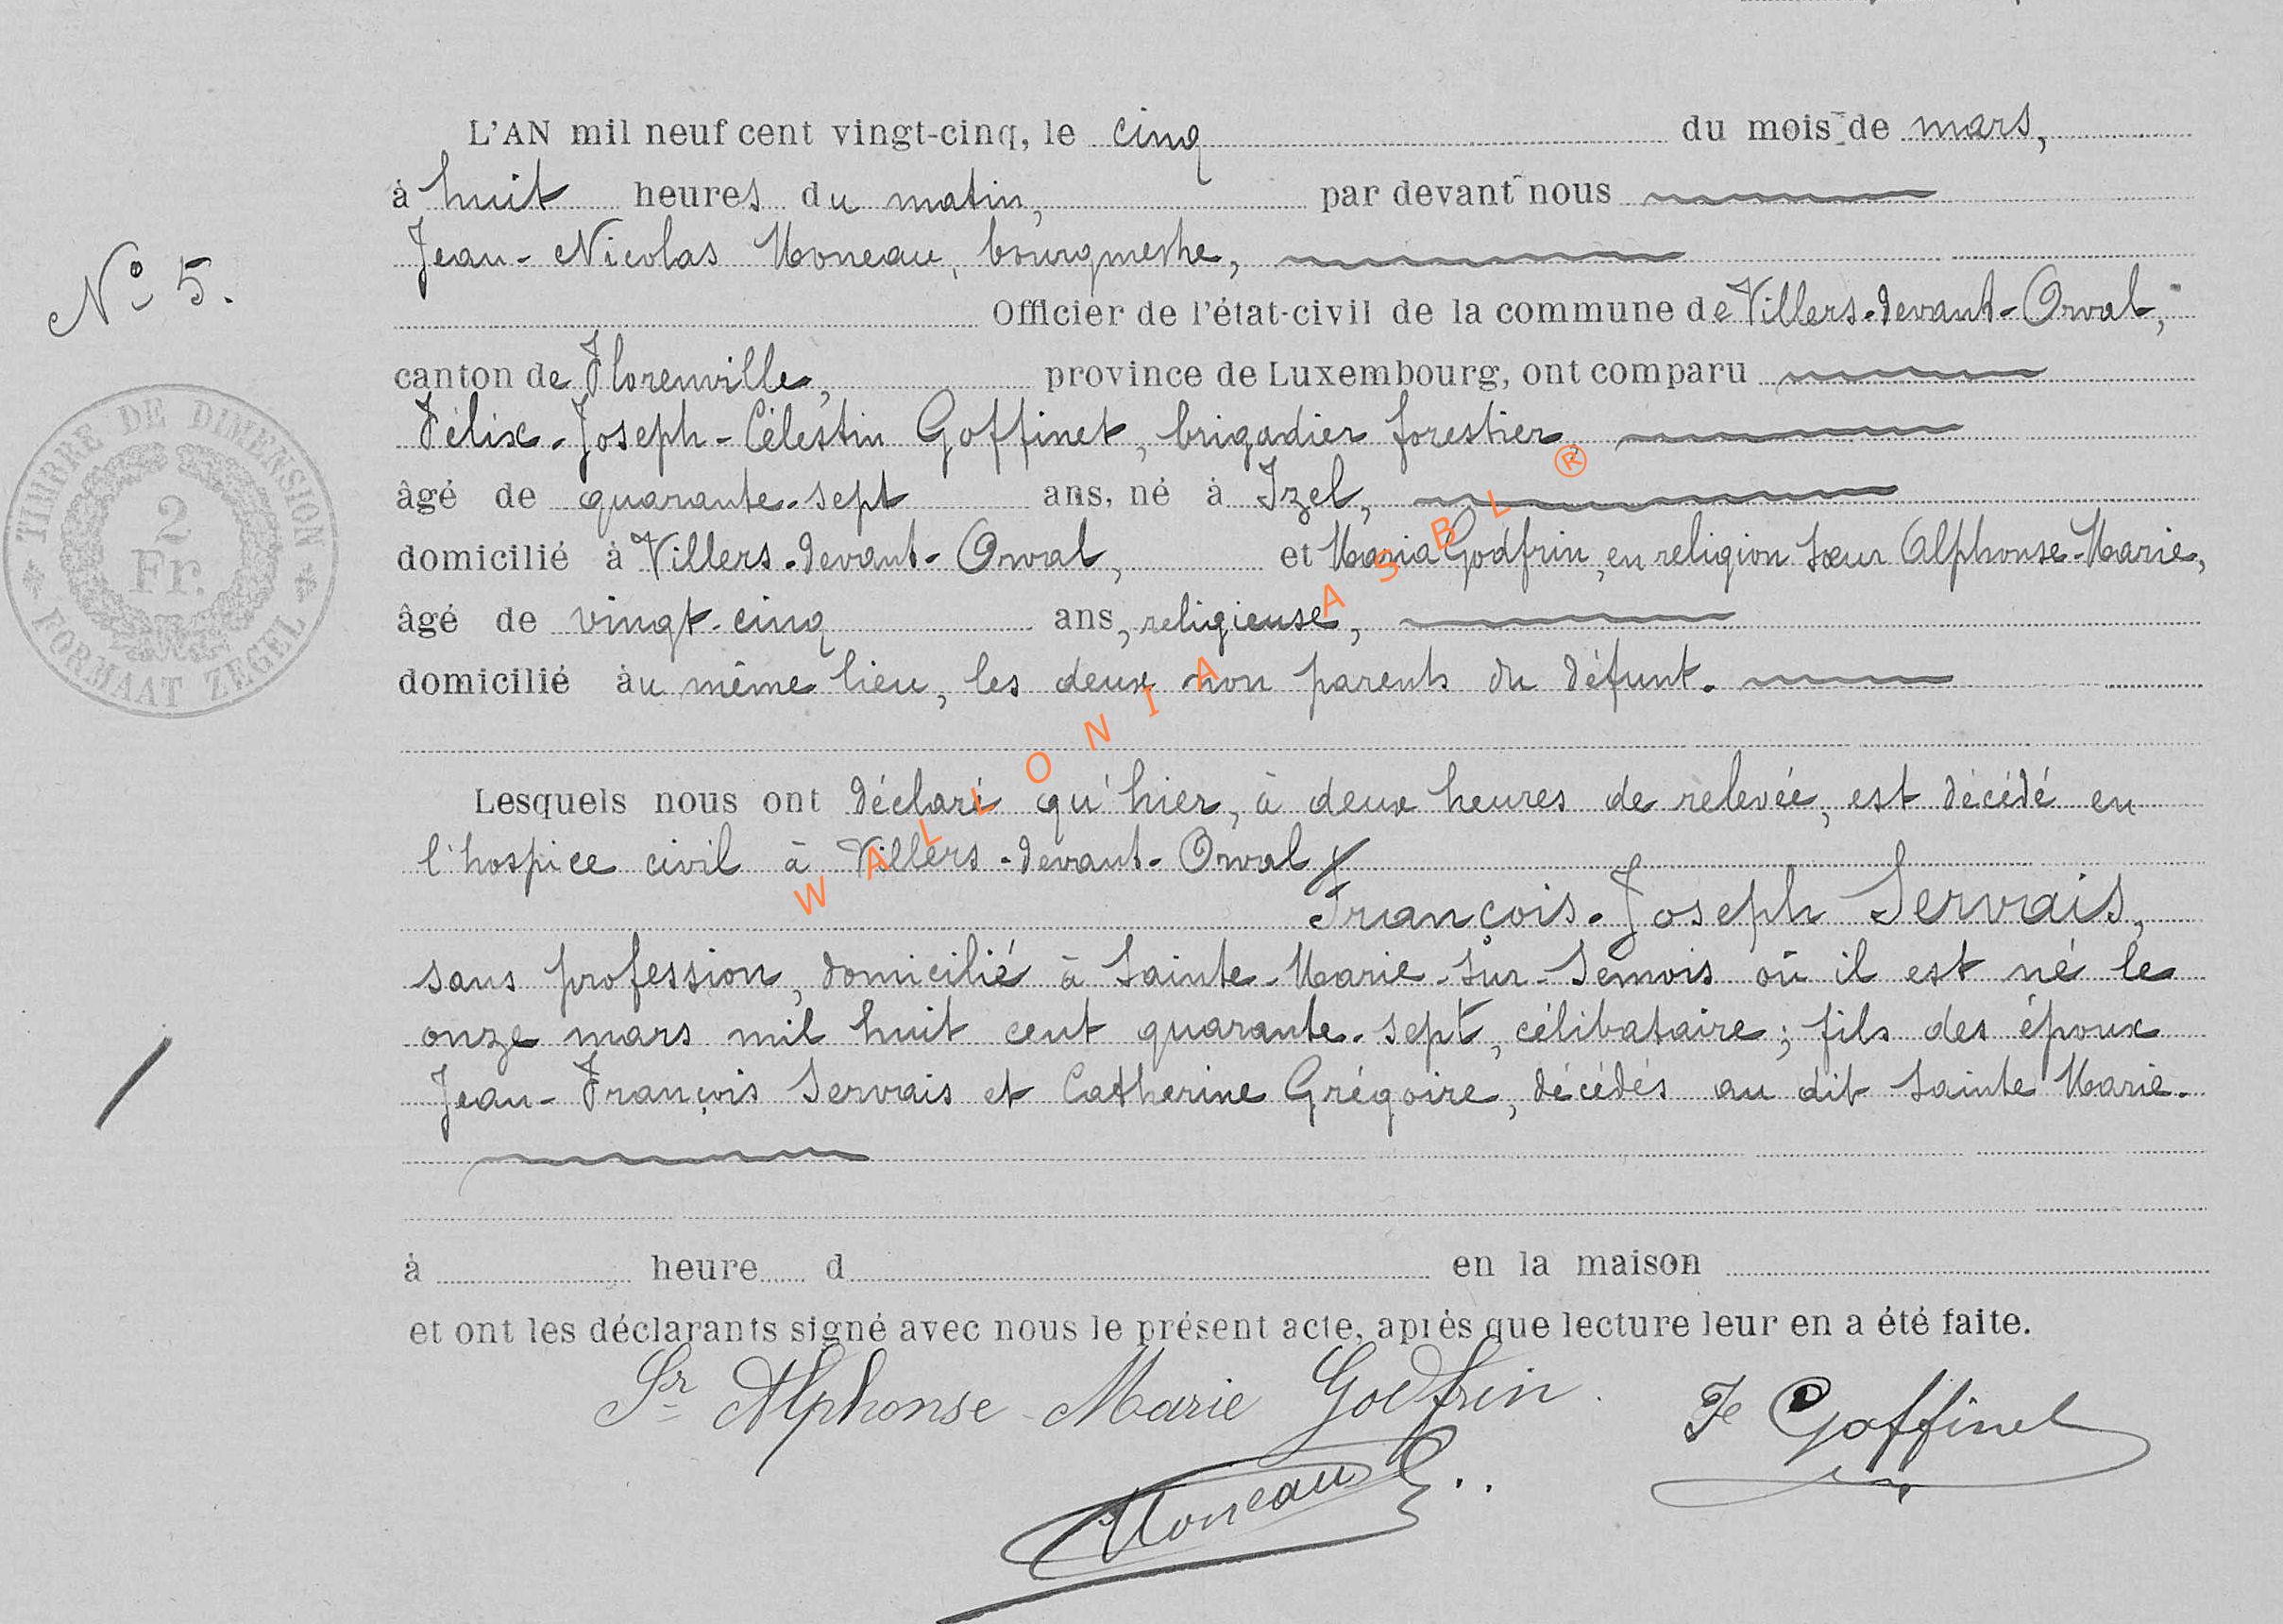 L'AN mil neuf cent vingt-cinq, le cinq du mois de mars,
à huit heures du matin, par devant nous
Jean-Nicolas Moneau, bourgmestre,
N° 5.
Officier de l'état-civil de la commune de Villers-devant-Orval,
canton de Florenville, province de Luxembourg, ont comparu
Félix-Joseph-Célestin Goffinet, brigadier forestier,
âgé de quarante-sept ans, né à Izel,
domicilié à Villers-devant-Orval, et Maria Godfrin, en religion Sœur Alphonse-Marie,
âgé de vingt-cinq ans, religieuse,
domicilié àu même lieu, les deux non parents du défunt.
TIMBRE DE DIMENSION
2
Fr.
FORMAAT ZEGEL
Lesquels nous ont déclaré qu'hier, à deux heures de relevée, est décédé en
l'hospice civil à Villers-devant-Orval
François-Joseph Servais,
sans profession, domicilié à Sainte-Marie-sur-Semois où il est né le
onze mars mil huit cent quarante-sept, célibataire; fils des époux
Jean-François Servais et Catherine Grégoire, décédés au dit Sainte Marie.
à heure d en la maison
et ont les déclarants signé avec nous le présent acte, après que lecture leur en a été faite.
Sr Alphonse-Marie Godfrin. F Goffinet
Moneau
WALLONIA ASBL ®